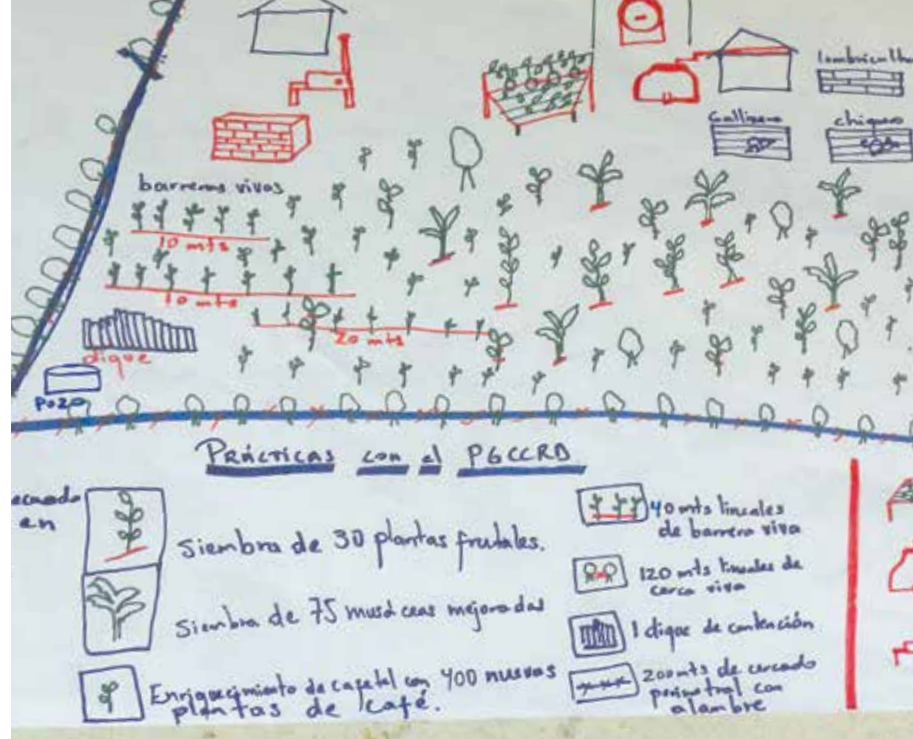 Gallinero
chiquero
barreras vivas
10 mts
10 mts
20 mts
dique
Pozo
PRÁCTICAS con el PGCCRD
en
Siembra de 30 plantas frutales.
Siembra de 75 musáceas mejoradas
Enriquecimiento de cafetal con 400 nuevas
plantas de café.
40 mts lineales
de barrera viva
120 mts lineales de
cerca viva
1 dique de contención
200 mts de cercado
perimetral con
alambre